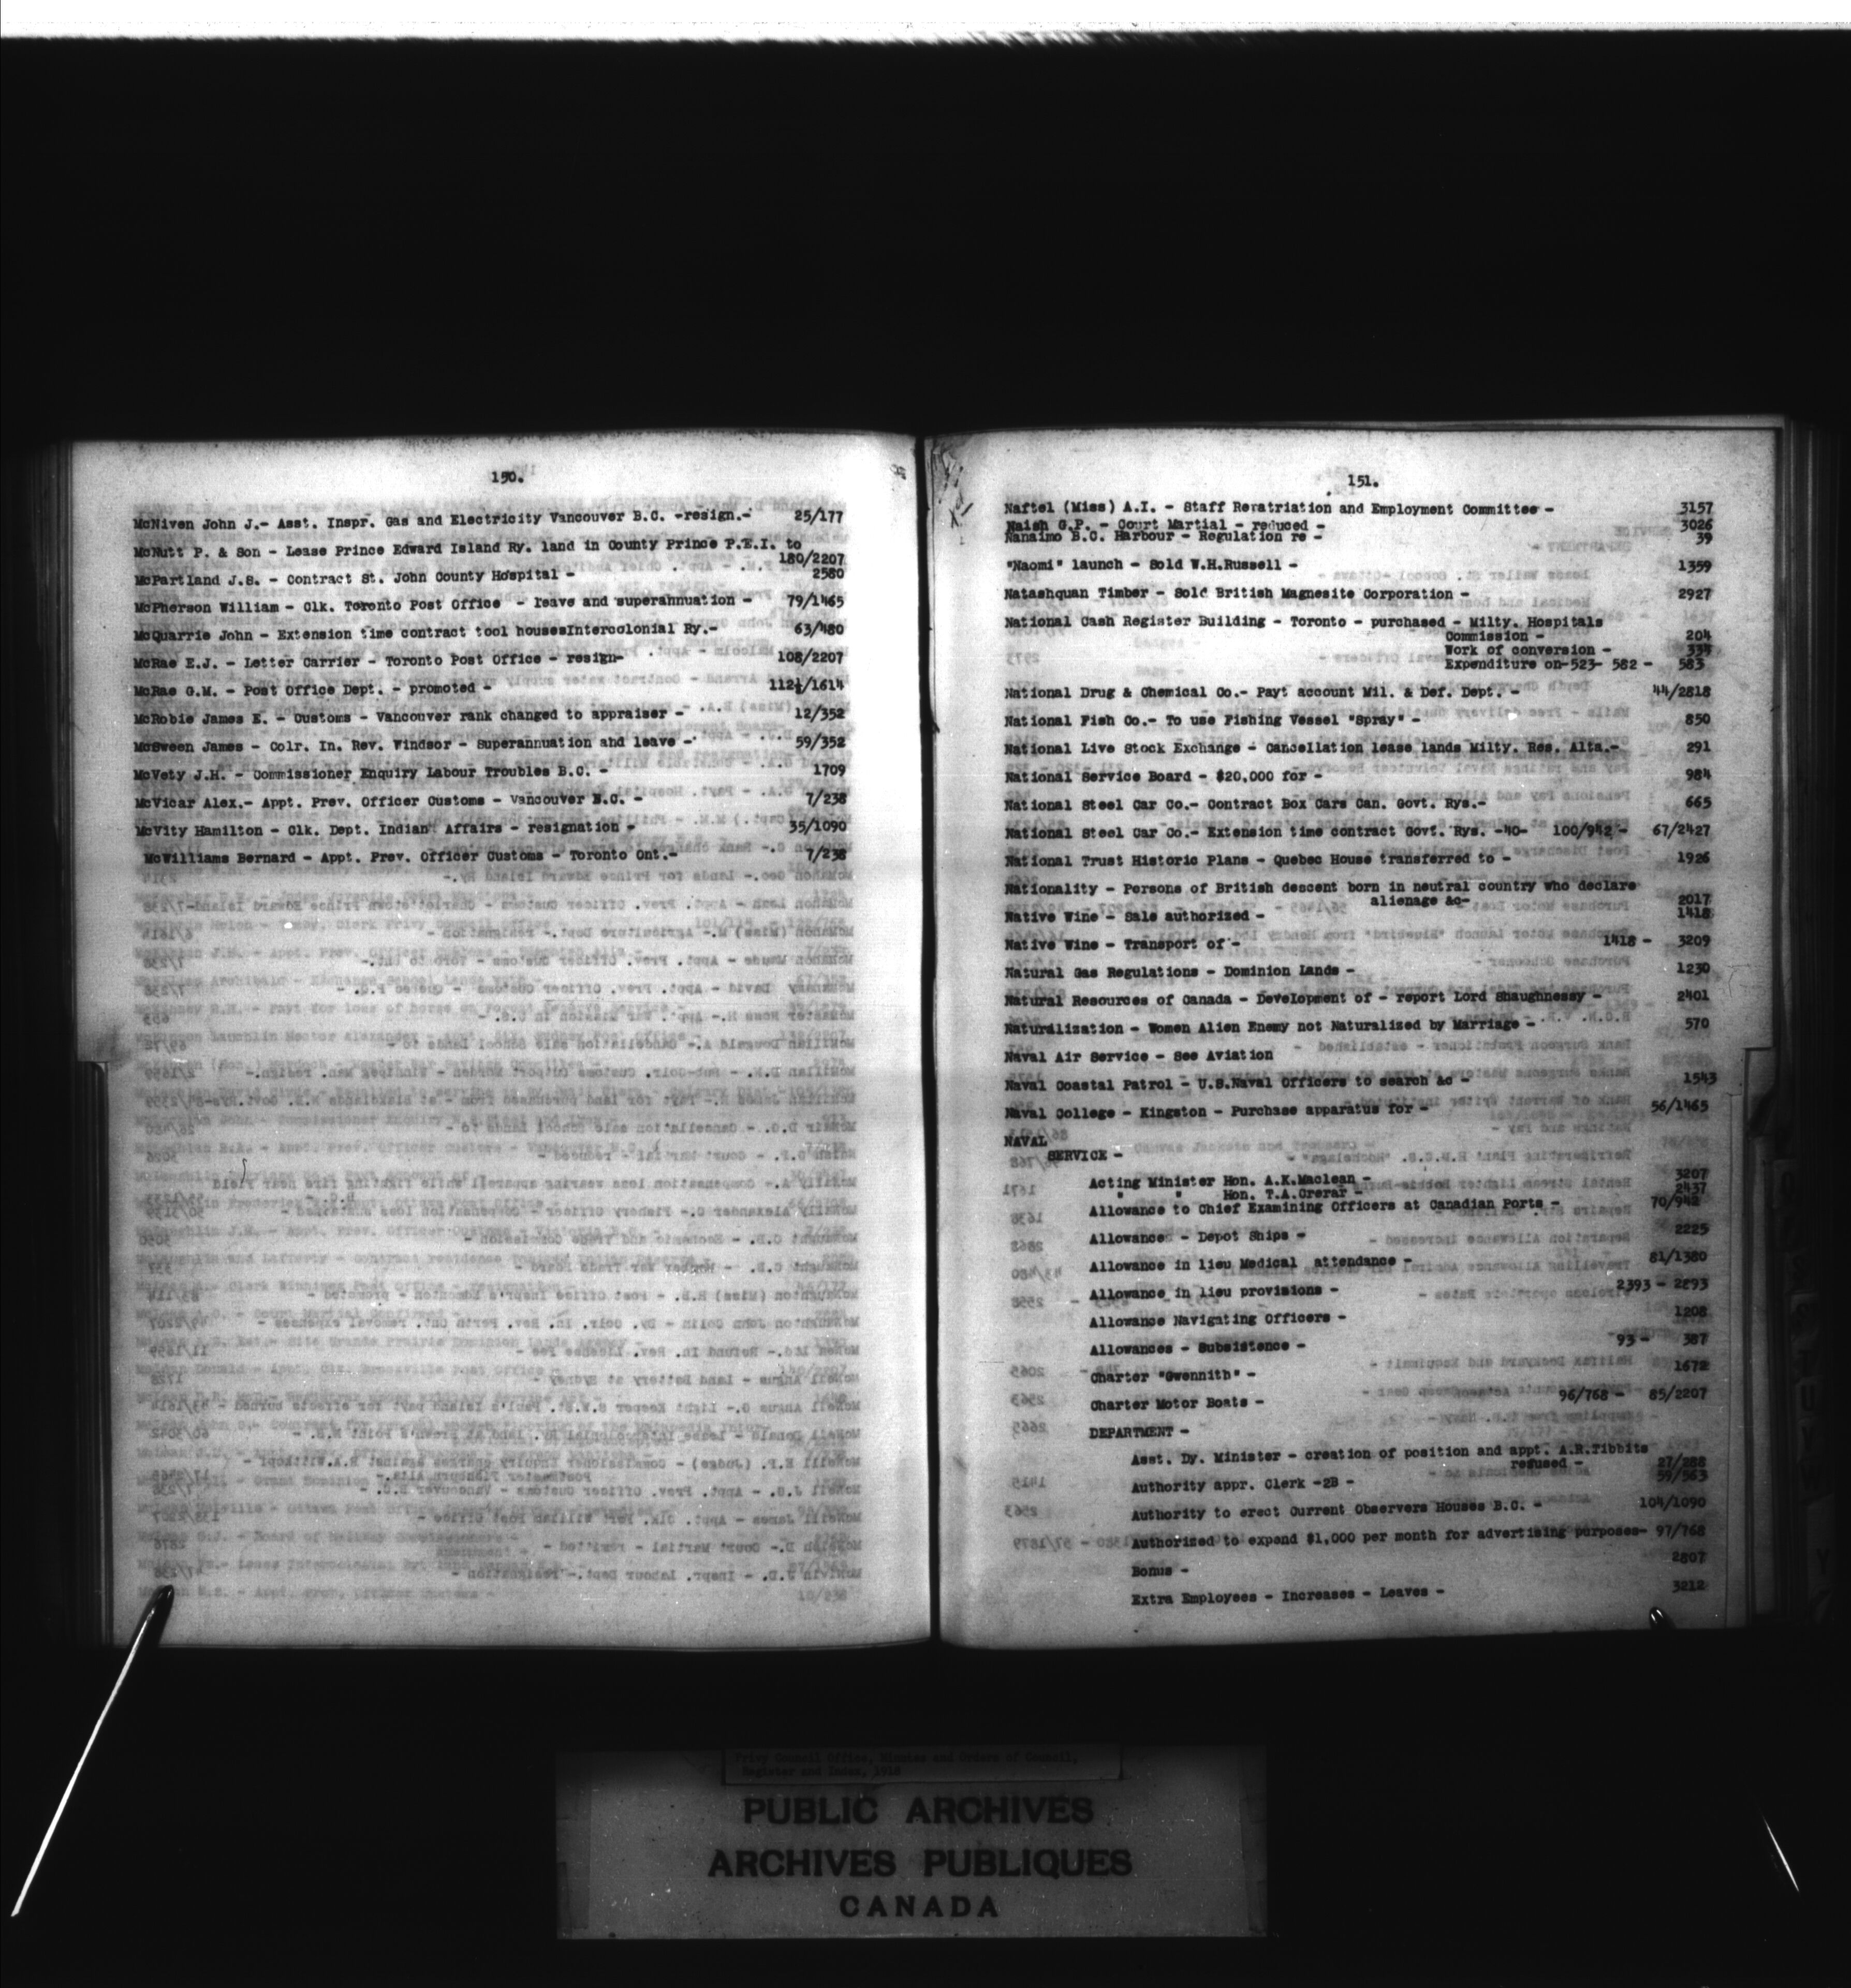 150.
McNiven John J.- Asst. Inspr. Gas and Electricity Vancouver B.C. -resign.- 25/177
McNutt P. & Son - Lease Prince Edward Island Ry. land in County Prince P.E.I. to
180/2207
McPartland J.S. - Contract St. John County Hospital - 2580
McPherson William - Clk. Toronto Post Office - leave and superannuation - 79/1465
McQuarrie John - Extension time contract tool housesIntercolonial Ry.- 63/480
McRae E.J. - Letter Carrier - Toronto Post Office - resign- 108/2207
McRae G.M. - Post Office Dept. - promoted - 112½/1614
McRobie James E. - Customs - Vancouver rank changed to appraiser - 12/352
McSween James - Colr. In. Rev. Windsor - Superannuation and leave - 59/352
McVety J.H. - Commissioner Enquiry Labour Troubles B.C. - 1709
McVicar Alex.- Appt. Prev. Officer Customs - Vancouver B.C. - 7/238
McVity Hamilton - Clk. Dept. Indian Affairs - resignation - 35/1090
McWilliams Bernard - Appt. Prev. Officer Customs - Toronto Ont.- 7/238
151.
Naftel (Miss) A.I. - Staff Reratriation and Employment Committee - 3157
Naish G.P. - Court Martial - reduced - 3026
Nanaimo B.C. Harbour - Regulation re - 39
"Naomi" launch - Sold W.H.Russell - 1359
Natashquan Timber - Sold British Magnesite Corporation - 2927
National Cash Register Building - Toronto - purchased - Milty. Hospitals
Commission - 204
Work of conversion - 334
Expenditure on-523- 582 - 583
National Drug & Chemical Co.- Payt account Mil. & Def. Dept. - 44/2818
National Fish Co.- To use Fishing Vessel "Spray" - 850
National Live Stock Exchange - Cancellation lease lands Milty. Res. Alta.- 291
National Service Board - $20,000 for - 984
National Steel Car Co.- Contract Box Cars Can. Govt. Rys.- 665
National Steel Car Co.- Extension time contract Govt. Rys. -40- 100/942 - 67/2427
National Trust Historic Plans - Quebec House transferred to - 1926
Nationality - Persons of British descent born in neutral country who declare
alienage &c- 2017
Native Wine - Sale authorized - 1418
Native Wine - Transport of - 1418 - 3209
Natural Gas Regulations - Dominion Lands - 1230
Natural Resources of Canada - Development of - report Lord Shaughnessy - 2401
Naturalization - Women Alien Enemy not Naturalized by Marriage - 570
Naval Air Service - See Aviation
Naval Coastal Patrol - U.S.Naval Officers to search &c - 1543
Naval College - Kingston - Purchase apparatus for - 56/1465
NAVAL
SERVICE -
Acting Minister Hon. A.K.Maclean - 3207
" " Hon. T.A.Crerar - 2437
Allowance to Chief Examining Officers at Canadian Ports - 70/942
Allowance - Depot Ships - 2225
Allowance in lieu Medical attendance - 81/1380
Allowance in lieu provisions - 2393 - 2893
Allowance Navigating Officers - 1208
Allowances - Subsistence - 93 - 387
Charter "Gwennith" - 1672
Charter Motor Boats - 96/768 - 85/2207
DEPARTMENT -
Asst. Dy. Minister - creation of position and appt. A.R.Tibbits
refused - 27/288
Authority appr. Clerk -2B - 59/563
Authority to erect Current Observers Houses B.C. - 104/1090
Authorized to expend $1,000 per month for advertising purposes- 97/768
Bonus - 2807
Extra Employees - Increases - Leaves - 3212
Privy Council Office, Minutes and Orders of Council,
Register and Index, 1918
PUBLIC ARCHIVES
ARCHIVES PUBLIQUES
CANADA